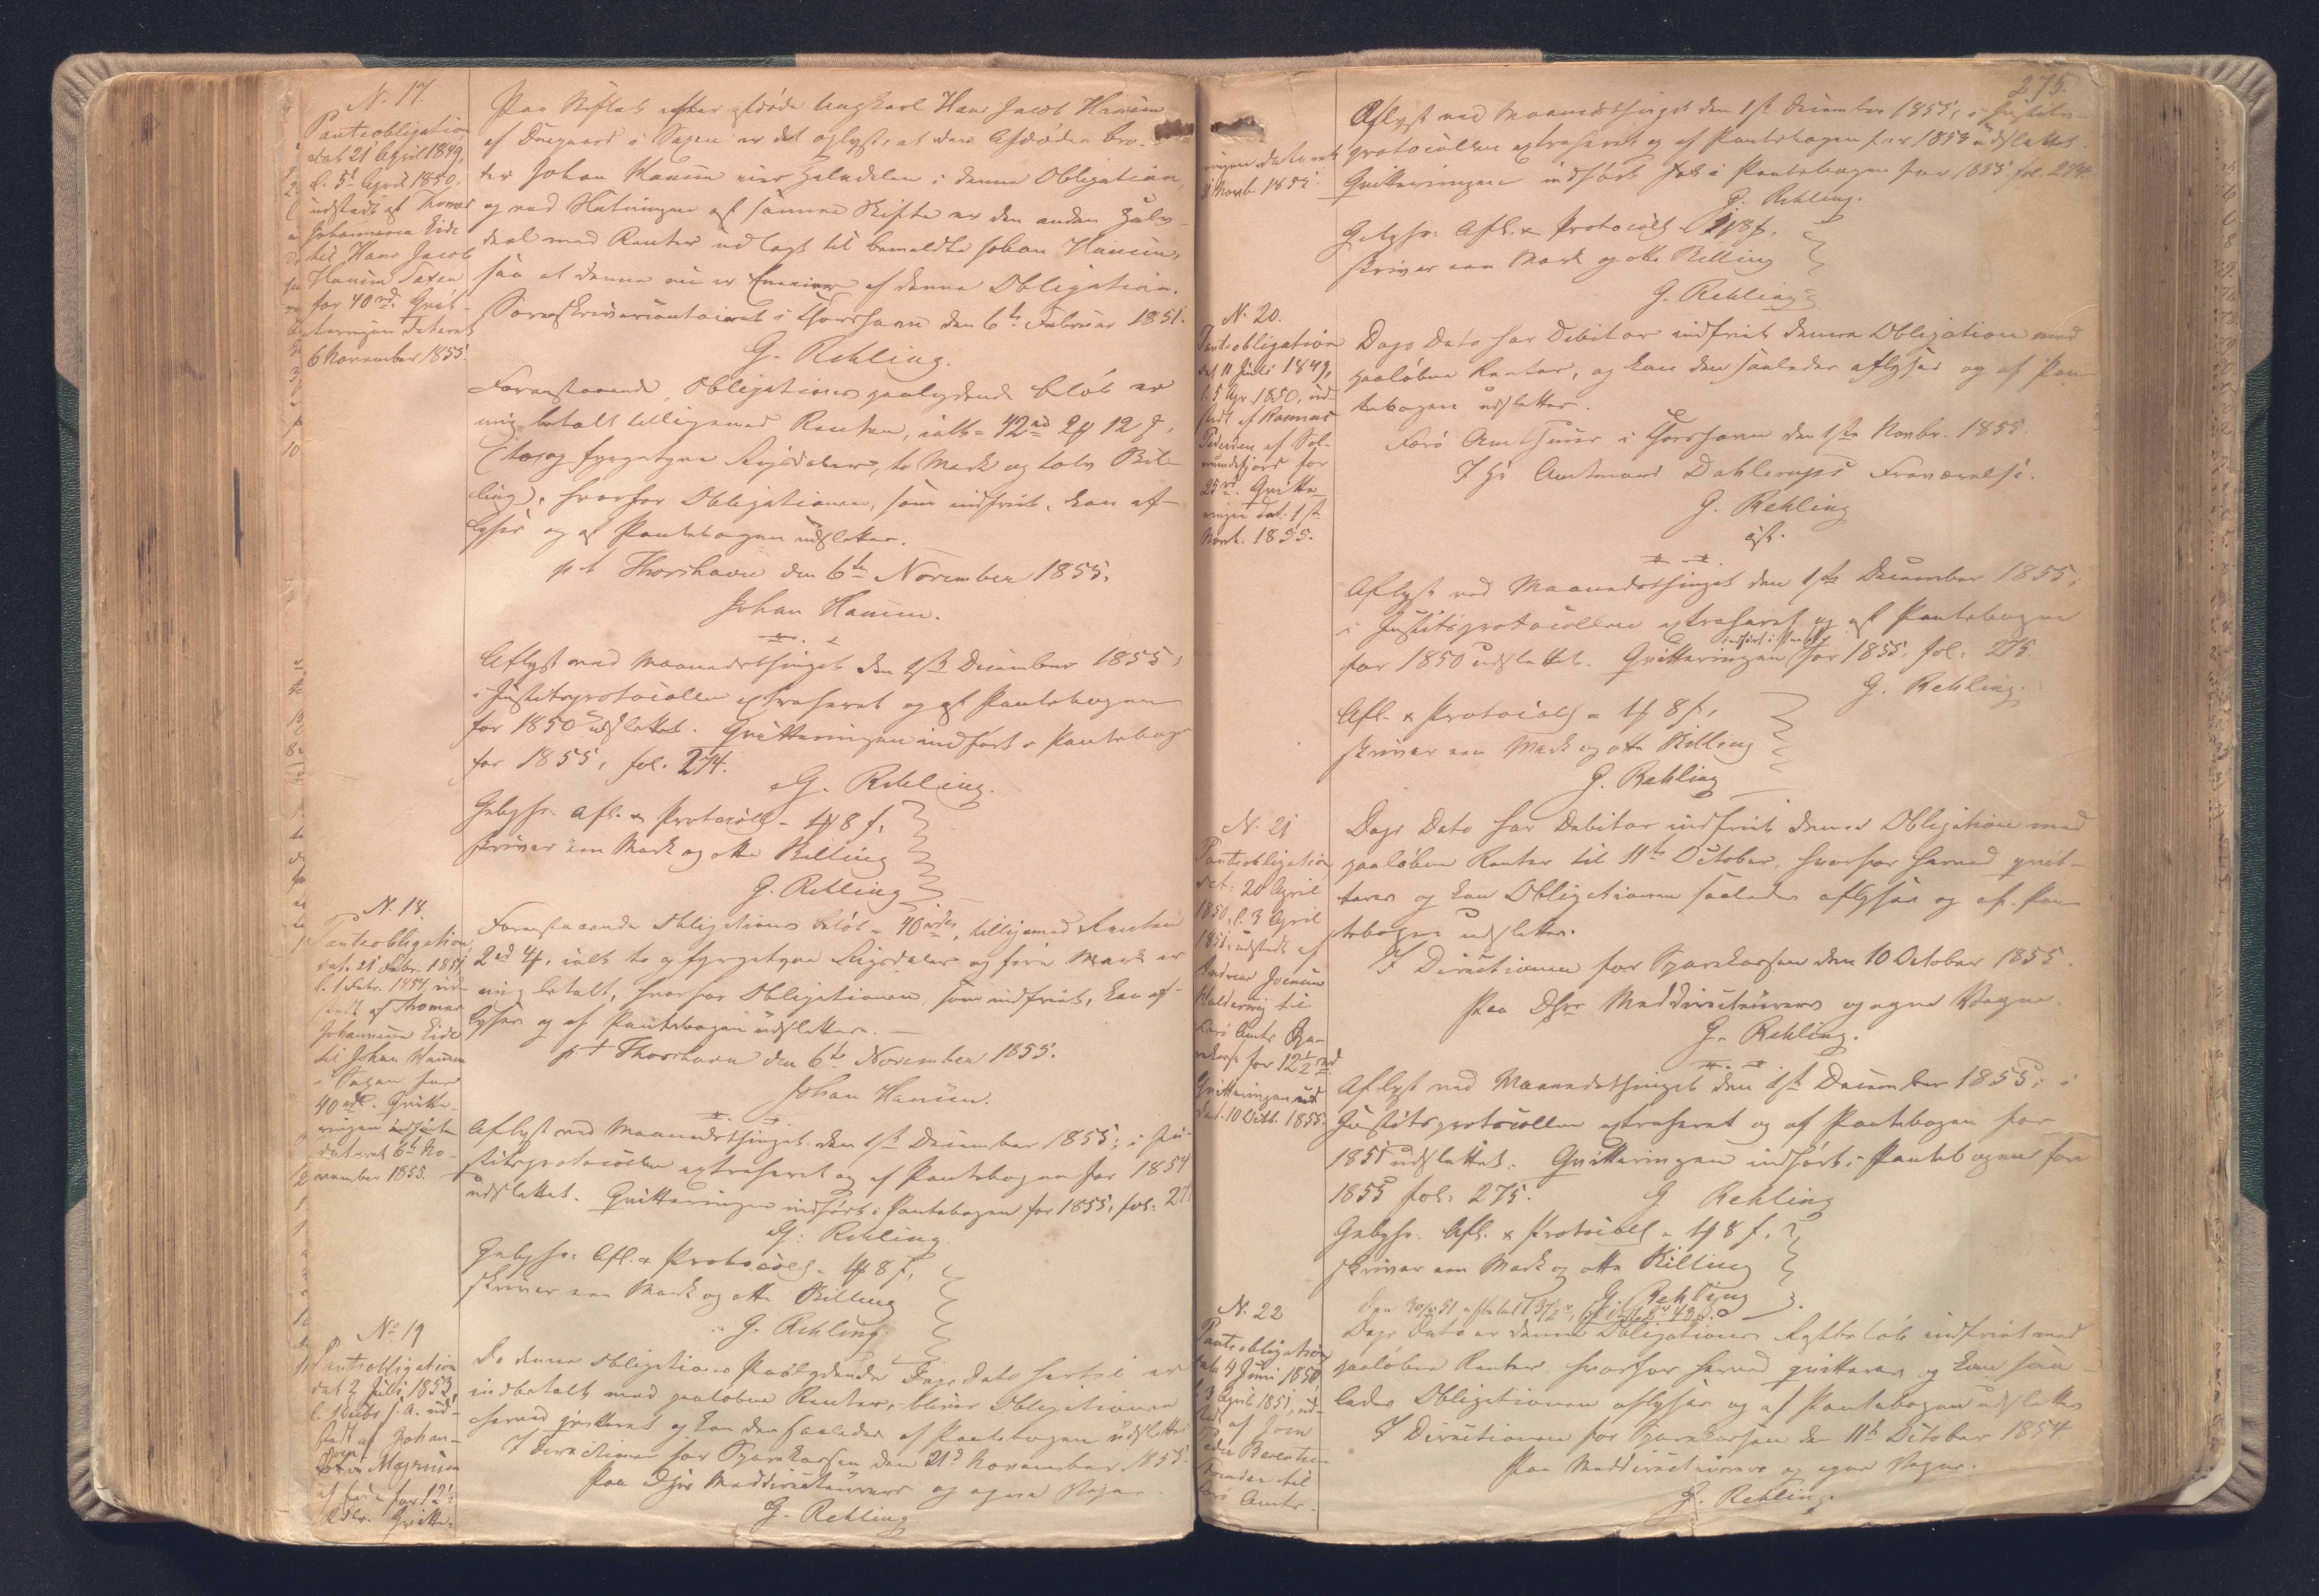 N. 17.
Panteobligation
dat 21 April 1849,
l. 5te April 1850,
udstedt af Thomas
Johannesen Eide
til Hans Jacob
Hansen Saxen
for 40 rd. Qvit-
teringen dateret
6 November 1855.
Paa Skiftet efter afdøde Ungkarl Hans Jacob Hansen
af Duegaard i Saxen er det oplyst, at den Afdødes Bro-
der Johan Hansen eier Halvdelen i denne Obligation,
og ved Slutningen af samme Skifte er den anden Halv-
deel med Renter udlagt til bemeldte Johan Hansen,
saa at denne nu er Eneeier af denne Obligation.
Sorenskrivercontoiret i Thorshavn den 6te Februar 1851.
G. Rehling.
Foranstaaende Obligations paalydende Beløb er
mig betalt tilligemed Renten, ialt = 42 rd 2 # 12 s,
(to og fyrgetyve Rigsdaler, to Mark og tolv Skil-
ling), hvorfor Obligationen, som indfriet, kan af-
lyses og af Pantebogen udslettes.
p t Thorshavn den 6te November 1855.
Johan Hansen.
Aflyst ved Maanedsthinget den 1ste December 1855,
i Justitsprotocollen extraheret og af Pantebogen
for 1850 udslettet. Qvitteringen indført i Pantebogen
for 1855, fol. 274.
G. Rehling.
Gebyhr: Afl. & Protocoll = 1 # 8 s,
skriver een Mark og otte Skilling
G. Rehling
N. 18.
Panteobligation
dat. 21 Febr. 1851
l. 1 Febr. 1854, ud-
stedt af Thomas
Johannesen Eide
til Johan Hansen
i Saxen for
40 rd. Qvitte-
ringen indført
dateret 6te No-
vember 1855.
Foranstaaende Obligations Beløb = 40 rd, tilligemed Renten
2 rd 4 #, ialt to og fyrgetyve Rigsdaler og fire Mark er
mig betalt, hvorfor Obligationen, som indfriet, kan af-
lyses og af Pantebogen udslettes.
p t Thorshavn den 6te November 1855.
Johan Hansen.
Aflyst ved Maanedsthinget den 1ste December 1855; i Ju-
stitsprotocollen extraheret og af Pantebogen for 1854
udslettet. Qvitteringen indført i Pantebogen for 1855, fol. 27
G. Rehling.
Gebyhr: Afl. & Protocoll = 1 # 8 s,
skriver een Mark og otte Skilling
G. Rehling.
No 19
Panteobligation
dat 2 Juli 1853,
ud-
stedt af Johan-
nes Magnusen
for 12½
Rdlr. Qvitte-
Da denne Obligations Paalydende Dags Dato hertil er
indbetalt med paaløbne Renter, bliver Obligationen
herved qvitteret og kan den saaledes af Pantebogen udslettes
I Directionen for Sparekassen den 21de November 1855.
Paa Dhrr Meddirecteurers og egne Vegne.
G. Rehling.
275.
ringen dateret
Novb. 1855.
Aflyst ved Maanedsthinget den 1ste December 1855, i Justits-
protocollen extraheret og af Pantebogen for 1853 udslettet.
Qvitteringen indført i Pantebogen for 1855, fol. 274.
G. Rehling.
Gebyhr: Afl. & Protocoll 1 # 8 s,
skriver een Mark og otte Skilling
G. Rehling
N. 20.
Panteobligation
dat 11 Juli 1849,
l. 5 Apr. 1850, ud-
stedt af Rasmus
Pedersen af Sol-
mundefjord for
25 rd. Qvitte-
ringen dat. 1ste
Novb. 1855.
Dags Dato har Debitor indfriet denne Obligation med
paaløbne Renter, og kan den saaledes aflyses og af Pan-
tebogen udslettes.
Færø Amtstuer i Thorshavn den 1ste Novbr. 1855.
I Hr Amtmand Dahlerups Fraværelse.
G. Rehling
cst.
Aflyst ved Maanedsthinget den 1ste December 1855,
i Justitsprotocollen extraheret og af Pantebogen
indført i Pantebg
for 1850 udslettet. Qvitteringen for 1855, fol: 275.
G. Rehling.
Afl. & Protocoll = 1 # 8 s,
skriver een Mark og otte Skilling
G. Rehling
N. 21
Panteobligation
dat: 20 April
1850, l. 3 April
1851, udstedt af
Andreas Joensen
til
Færø Amts Spa-
rekasse for 12½ rd
Qvitteringen
dat. 10 Octb. 1855.
Dags Dato har Debitor indfriet denne Obligation med
paaløbne Renter til 11te October, hvorfor herved qvit-
teres og kan Obligationen saaledes aflyses og af Pan-
tebogen udslettes.
I Directionen for Sparekassen den 10 October 1855.
Paa Dhrr Meddirecteurers og egne Vegne.
G. Rehling.
Aflyst ved Maanedsthinget den 1ste December 1855; i
Justitsprotocollen extraheret og af Pantebogen for
1851 udslettet. Qvitteringen indført i Pantebogen for
1855 fol: 275.
G Rehling
Gebyhr: Afl. & Protocoll = 1 # 8 s,
skriver een Mark og otte Skilling
G. Rehling
N. 22
Panteobligation
dat. 4 Juni 1850
l. 3 April 1851, ud-
stedt af Joen
Peder Berentsen
til
Færø Amts-
Dags Dato er denne Obligations Restbeløb indfriet med
paaløbne Renter, hvorfor herved qvitteres og kan saa-
ledes Obligationen aflyses og af Pantebogen udslettes
I Directionen for Sparekassen den 11te October 1854
Paa Meddirecteurers og egne Vegne.
G. Rehling.